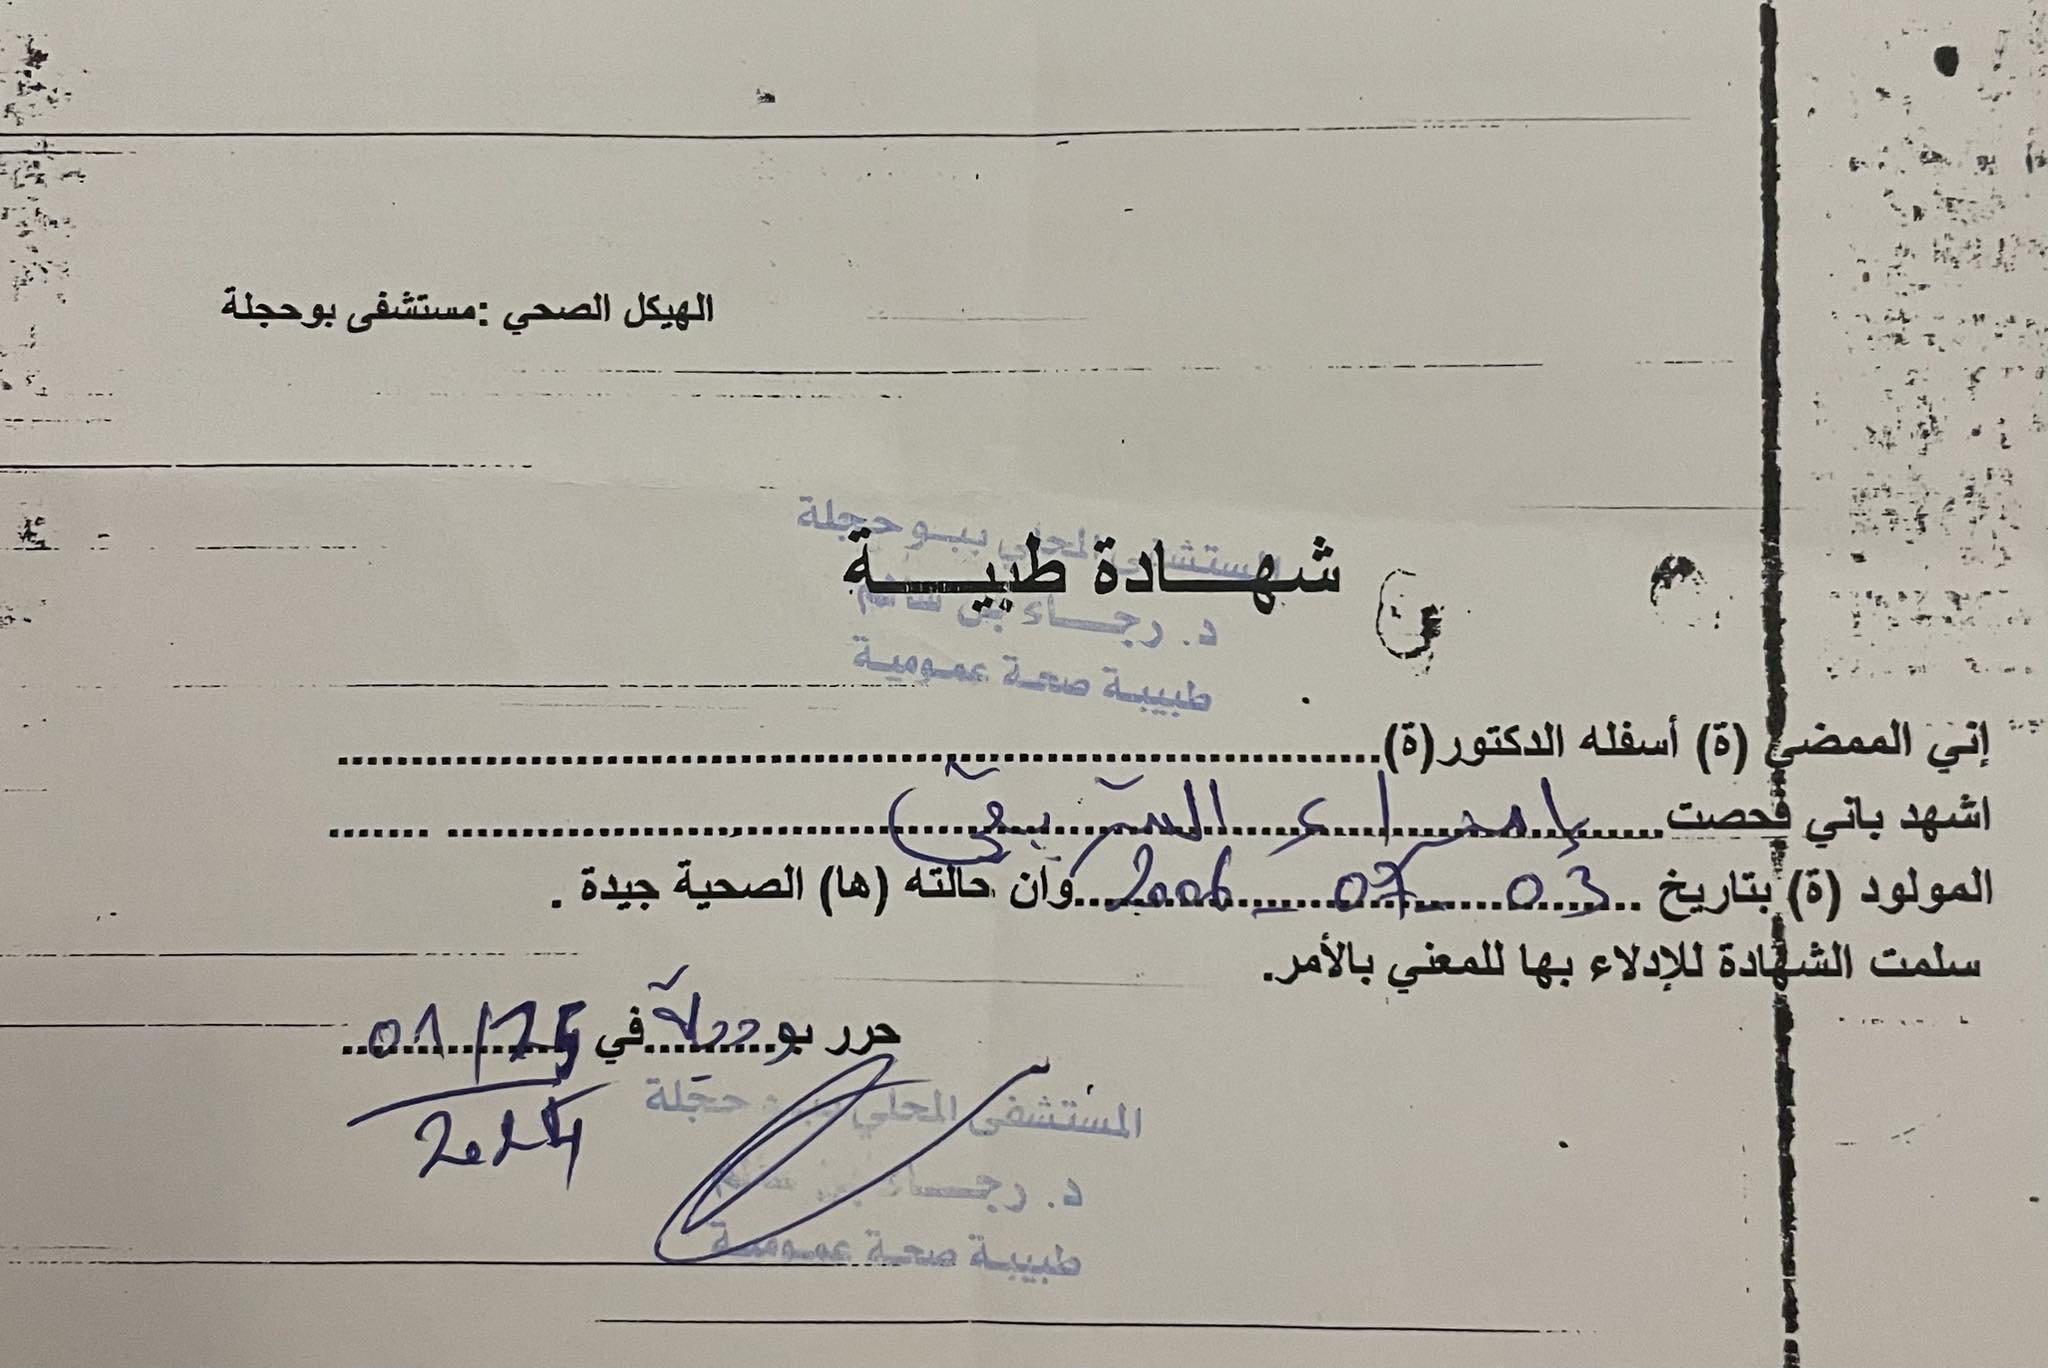 الهيكل الصحي :مستشفى بوحجلة
المستشفى المحلي ببوحجلة
شهـــادة طبيـــــة
د. رجــــاء بن
طبيبة صحة عمومية
إني الممضي (ة) أسفله الدكتور(ة)......................................................................
اشهد باني فحصت.....إسراء.....................................
المولود (ة) بتاريخ ..03-07-2006..وأن حالته (ها) الصحية جيدة .
سلمت الشهادة للإدلاء بها للمعني بالأمر.
حرر بو.........في 01/25
2024
المستشفى المحلي ببوحجلة
د. رجــــاء بن
طبيبة صحة عمومية